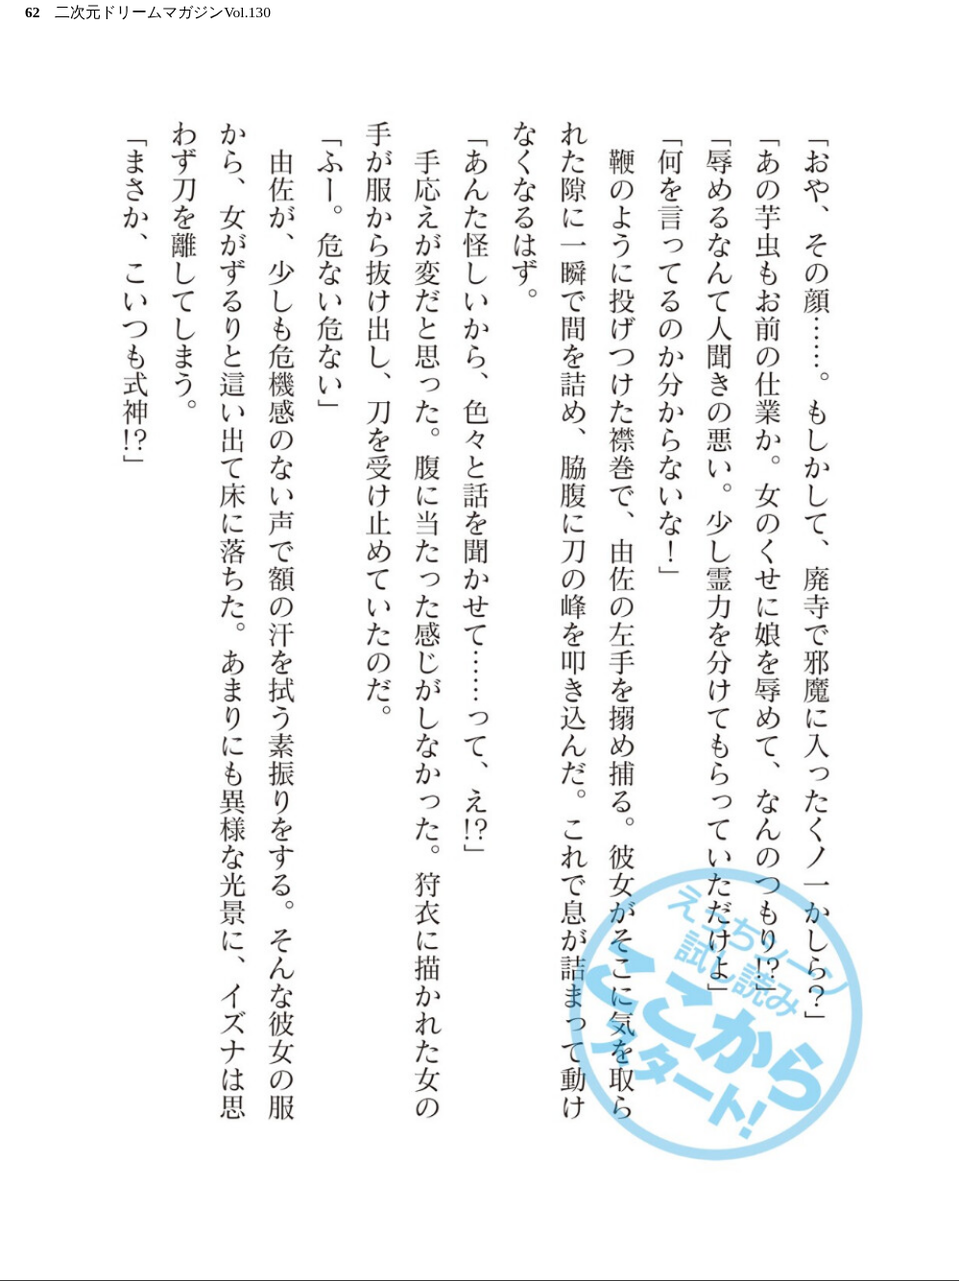 62 二次元ドリームマガジンVol.130
「おや、その顔……。もしかして、廃寺で邪魔に入ったくノ一かしら？」
「あの芋虫もお前の仕業か。女のくせに娘を辱めて、なんのつもり!?」
「辱めるなんて人聞きの悪い。少し霊力を分けてもらっていただけよ」
「何を言ってるのか分からないな！」
　鞭のように投げつけた襟巻で、由佐の左手を搦め捕る。彼女がそこに気を取ら
れた隙に一瞬で間を詰め、脇腹に刀の峰を叩き込んだ。これで息が詰まって動け
なくなるはず。
「あんた怪しいから、色々と話を聞かせて……って、え!?」
　手応えが変だと思った。腹に当たった感じがしなかった。狩衣に描かれた女の
手が服から抜け出し、刀を受け止めていたのだ。
「ふー。危ない危ない」
　由佐が、少しも危機感のない声で額の汗を拭う素振りをする。そんな彼女の服
から、女がずるりと這い出て床に落ちた。あまりにも異様な光景に、イズナは思
わず刀を離してしまう。
「まさか、こいつも式神!?」
えっちシーン
試し読み
ここから
スタート!